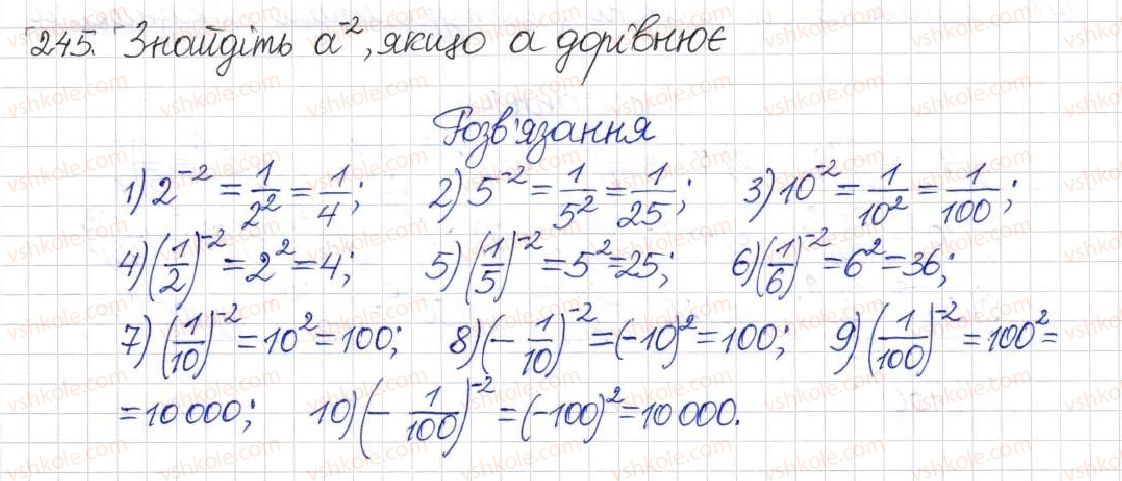 245. Знайдіть a⁻², якщо a дорівнює
Розв'язання
1) 2⁻² = 1/2² = 1/4; 2) 5⁻² = 1/5² = 1/25; 3) 10⁻² = 1/10² = 1/100;
4) (1/2)⁻² = 2² = 4; 5) (1/5)⁻² = 5² = 25; 6) (1/6)⁻² = 6² = 36;
7) (1/10)⁻² = 10² = 100; 8) (- 1/10)⁻² = (-10)² = 100; 9) (1/100)⁻² = 100² =
= 10 000; 10) (- 1/100)⁻² = (-100)² = 10 000.